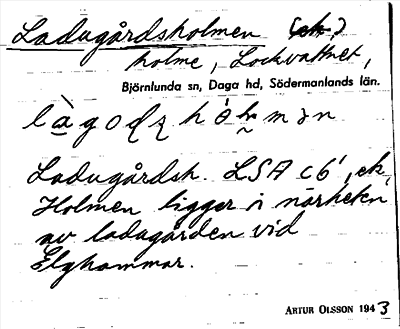 Ladugårdsholmen (ek.)
holme, Lockvattnet,
Björnlunda sn, Daga hd, Södermanlands län.
Ladugårdsh. LSA c6', ek
Holmen ligger i närheten
av ladugården vid
Elghammar.
ARTUR OLSSON 1943